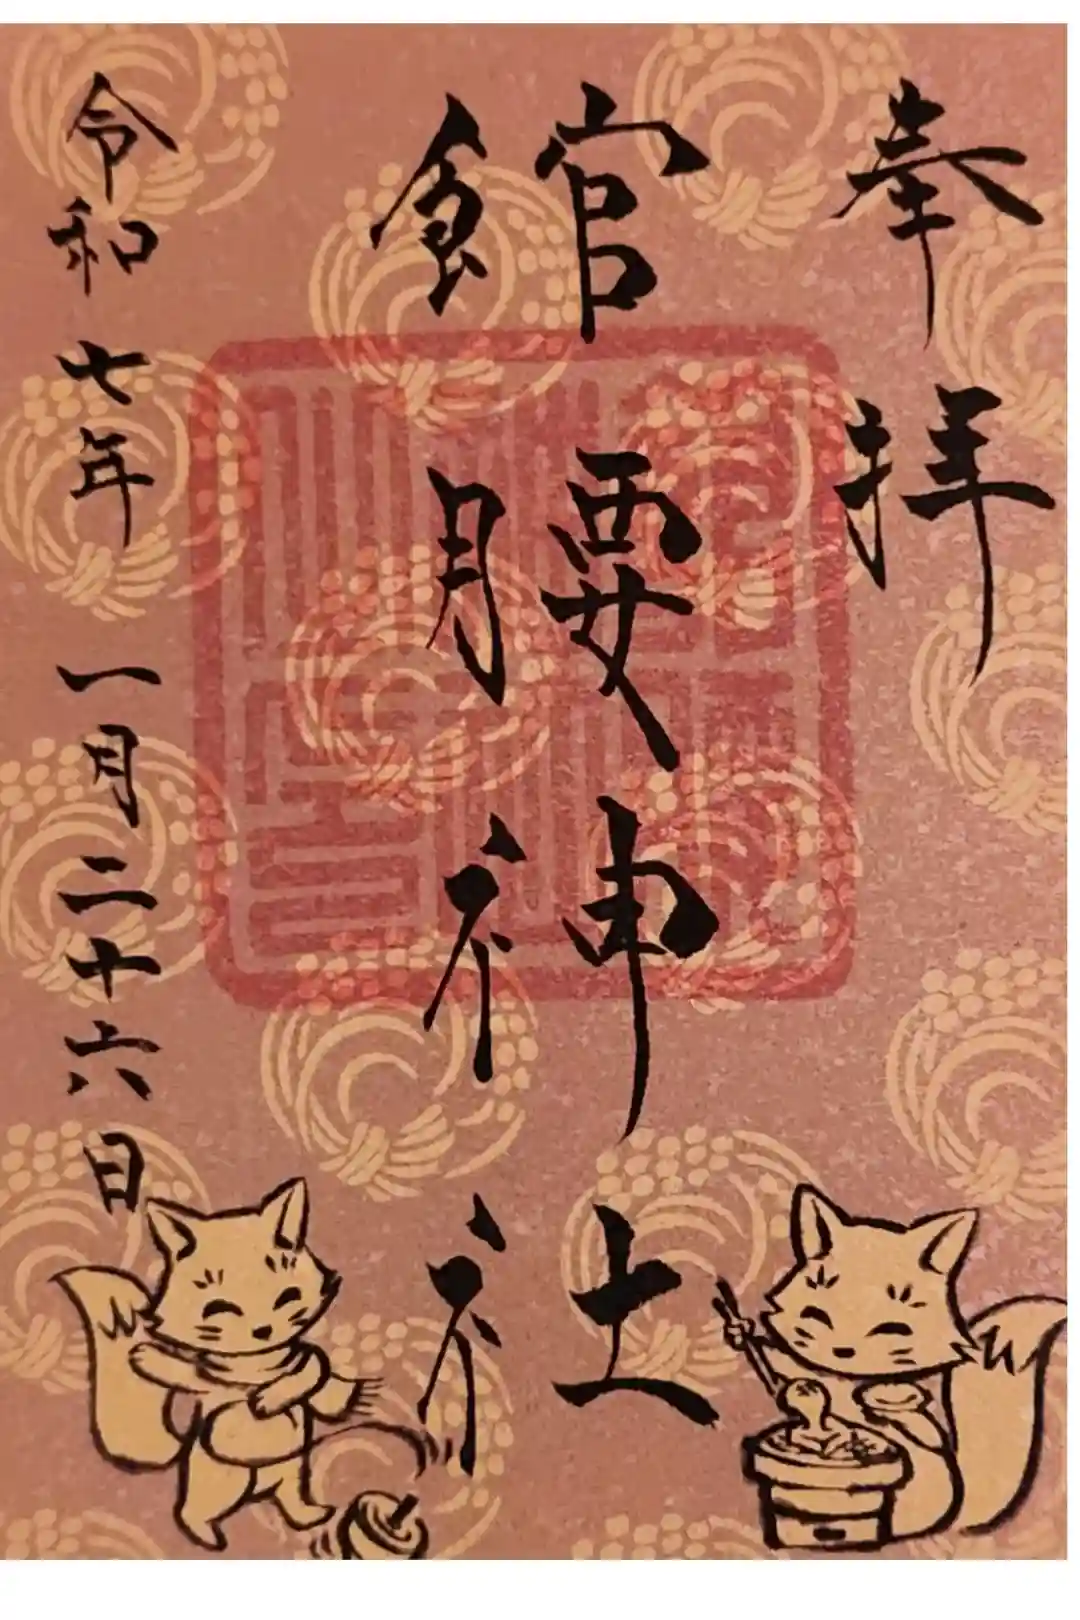 奉拝
館腰神社
令和七年一月二十六日